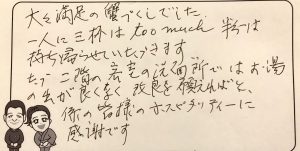 大々満足の蟹づくしでした
一人に三杯は too much 半分は
持ち帰らせていただきます
ただ二階の客室の洗面所ではお湯
の出が良くなく 改良を願えればと、
係の皆様のホスピタリティーに
感謝です